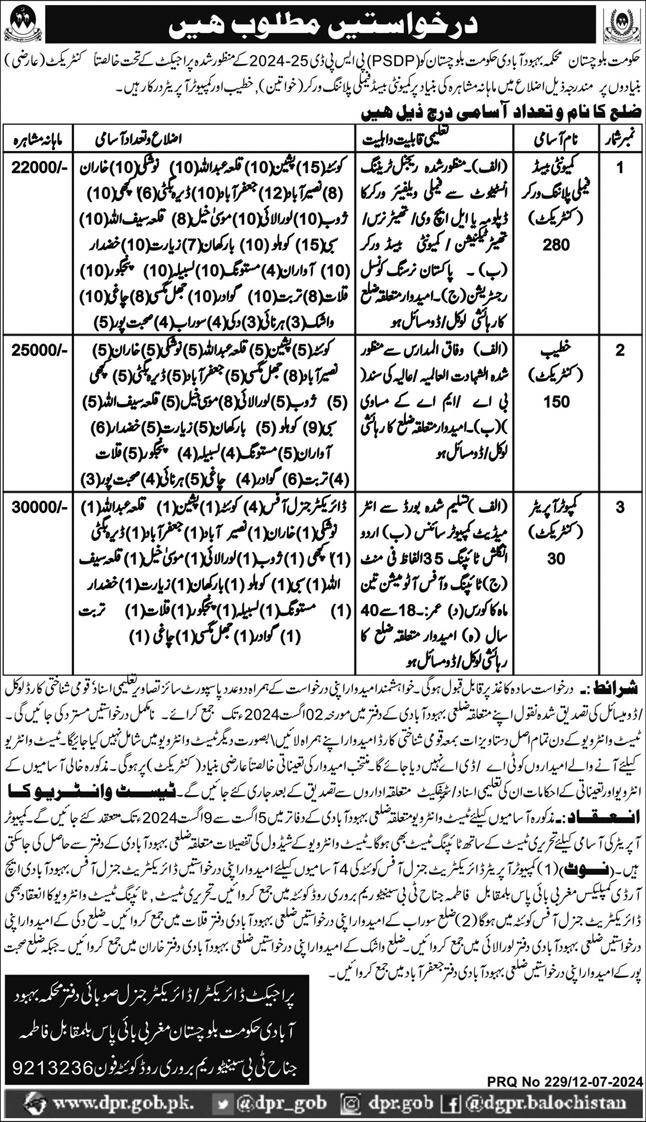 درخواستیں مطلوب ہیں
حکومت بلوچستان محکمہ بہبود آبادی حکومت بلوچستان کو (PSDP) پی ایس پی ڈی 25-2024 کے منظور شدہ پراجیکٹ کے تحت خالصتاً کنٹریکٹ (عارضی)
بنیادوں پر مندرجہ ذیل اضلاع میں ماہانہ مشاہرہ کی بنیاد پر کمیونٹی بیسڈ فیملی پلاننگ ورکر (خواتین)، خطیب اور کمپیوٹر آپریٹر درکار ہیں۔
ضلع کا نام و تعداد آسامی درج ذیل ہیں
نمبر شمار نام آسامی تعلیمی قابلیت و اہلیت اضلاع و تعداد آسامی ماہانہ مشاہرہ
1
کمیونٹی بیسڈ
فیملی پلاننگ ورکر
(کنٹریکٹ)
280
(الف)۔ منظور شدہ ریجنل ٹریننگ
انسٹیٹیوٹ سے فیملی ویلفیئر ورکر کا
ڈپلومہ یا ایل ایچ وی/ تھیٹر نرس/
تھیٹر ٹیکنیشن/ کمیونٹی بیسڈ ورکر
(ب)۔ پاکستان نرسنگ کونسل
رجسٹریشن (ج)۔ امیدوار متعلقہ ضلع
کا رہائشی لوکل/ ڈومسائل ہو
کوئٹہ (15) پشین (10) قلعہ عبداللہ (10) نوشکی (10) خاران
(8) نصیر آباد (12) جعفر آباد (10) ڈیرہ بگٹی (6) کچھی (10)
ژوب (10) لورالائی (10) موسیٰ خیل (8) قلعہ سیف اللہ (10)
سبی (15) کوہلو (10) بارکھان (7) زیارت (10) خضدار
(10) آواران (4) مستونگ (10) لسبیلہ (10) پنجگور (10)
قلات (8) تربت (10) گوادر (10) جھل مگسی (8) چاغی (10)
واشک (3) ہرنائی (3) دکی (4) سوراب (4) صحبت پور (5)
22000/-
2
خطیب
(کنٹریکٹ)
150
(الف) وفاق المدارس سے منظور
شدہ الشہادت العالمیہ/ عالیہ کی سند (
بی اے / ایم اے کے مساوی
)(ب)۔ امیدوار متعلقہ ضلع کا رہائشی
لوکل/ ڈومسائل ہو
کوئٹہ (5) پشین (5) قلعہ عبداللہ (5) نوشکی (5) خاران (5)
نصیر آباد (8) جھل مگسی (5) جعفر آباد (5) ڈیرہ بگٹی (5) کچھی
(5) ژوب (5) لورالائی (8) موسیٰ خیل (5) قلعہ سیف اللہ (5)
سبی (9) کوہلو (5) بارکھان (5) زیارت (5) خضدار (6)
آواران (5) مستونگ (4) لسبیلہ (4) پنجگور (5) قلات
(4) تربت (6) گوادر (4) چاغی (5) ہرنائی (4) صحبت پور (3)
25000/-
3
کمپیوٹر آپریٹر
(کنٹریکٹ)
30
(الف) تسلیم شدہ بورڈ سے انٹر
میڈیٹ کمپیوٹر سائنس (ب) اردو
انگلش ٹائپنگ 35 الفاظ فی منٹ
(ج) ٹائپنگ و آفس آٹومیشن تین
ماہ کا کورس (د) عمر:۔ 18 سے 40
سال (ہ) امیدوار متعلقہ ضلع کا
رہائشی لوکل/ ڈومسائل ہو
ڈائریکٹر جنرل آفس (4) کوئٹہ (1) پشین (1) قلعہ عبداللہ (1)
نوشکی (1) خاران (1) نصیر آباد (1) جعفر آباد (1) ڈیرہ بگٹی
(1) کچھی (1) ژوب (1) لورالائی (1) موسیٰ خیل (1) قلعہ سیف
اللہ (1) سبی (1) کوہلو (1) بارکھان (1) زیارت (1) خضدار
(1) مستونگ (1) لسبیلہ (1) پنجگور (1) قلات (1) تربت
(1) گوادر (1) جھل مگسی (1) چاغی (1)
30000/-
شرائط:۔ درخواست سادہ کاغذ پر قابل قبول ہوگی۔ خواہشمند امیدوار اپنی درخواست کے ہمراہ دو عدد پاسپورٹ سائز تصاویر تعلیمی اسناد قومی شناختی کارڈ لوکل
/ ڈومیسائل کی تصدیق شدہ نقول اپنے متعلقہ ضلعی بہبود آبادی کے دفتر میں مورخہ 02 اگست 2024ء تک جمع کرائے۔ نامکمل درخواستیں مسترد کی جائیں گی۔
ٹیسٹ و انٹرویو کے دن تمام اصل دستاویزات بمعہ قومی شناختی کارڈ امیدوار اپنے ہمراہ لائیں/ بصورت دیگر ٹیسٹ و انٹرویو میں شامل نہیں کیا جائیگا۔ ٹیسٹ و انٹرویو
کیلئے آنے والے امیدواروں کو ٹی اے/ ڈی اے نہیں دیا جائے گا۔ منتخب امیدوار کی تعیناتی خالصتاً عارضی بنیاد (کنٹریکٹ) پر ہوگی۔ مذکورہ خالی آسامیوں کے
انٹرویو اور تعیناتی کے احکامات ان کی تعلیمی اسناد/ سرٹیفکیٹ متعلقہ اداروں سے تصدیق کے بعد جاری کئے جائیں گے۔ ٹیسٹ و انٹریو کا
انعقاد:۔ مذکورہ آسامیوں کیلئے ٹیسٹ و انٹرویو متعلقہ ضلعی بہبود آبادی کے دفاتر میں 5 اگست سے 9 اگست 2024 تک منعقد کئے جائیں گے۔ کمپیوٹر
آپریٹر کی آسامی کیلئے تحریری ٹیسٹ کے ساتھ ٹائپنگ ٹیسٹ بھی ہوگا۔ ٹیسٹ و انٹرویو کے شیڈول کی تفصیلات متعلقہ ضلعی بہبود آبادی کے دفتر سے حاصل کی جاسکتی
ہیں۔ (نوٹ) (1) کمپیوٹر آپریٹر ڈائریکٹریٹ جنرل آفس کوئٹہ کی 4 آسامیوں کیلئے امیدوار اپنی درخواستیں ڈائریکٹریٹ جنرل آفس بہبود آبادی ایچ
آر ڈی کمپلیکس مغربی بائی پاس بلمقابل فاطمہ جناح ٹی بی سینیٹوریم بروری روڈ کوئٹہ میں جمع کروائیں۔ تحریری ٹیسٹ، ٹائپنگ ٹیسٹ و انٹرویو کا انعقاد بھی
ڈائریکٹریٹ جنرل آفس کوئٹہ میں ہوگا (2) ضلع سوراب کے امیدوار اپنی درخواستیں ضلعی بہبود آبادی دفتر قلات میں جمع کروائیں۔ ضلع دکی کے امیدوار اپنی
درخواستیں ضلعی بہبود آبادی دفتر لورالائی میں جمع کروائیں۔ ضلع واشک کے امیدوار اپنی درخواستیں ضلعی بہبود آبادی دفتر خاران میں جمع کروائیں۔ جبکہ ضلع صحبت
پور کے امیدوار اپنی درخواستیں ضلعی بہبود آبادی دفتر جعفر آباد میں جمع کروائیں۔
پراجیکٹ ڈائریکٹر/ ڈائریکٹر جنرل صوبائی دفتر محکمہ بہبود
آبادی حکومت بلوچستان مغربی بائی پاس بلمقابل فاطمہ
جناح ٹی بی سینیٹوریم بروری روڈ کوئٹہ فون 9213236
PRQ No 229/12-07-2024
www.dpr.gob.pk. @dpr_gob dpr.gob @dgpr.balochistan